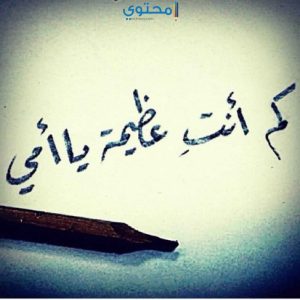 محتوى
كم أنتِ عظيمة يا أمي